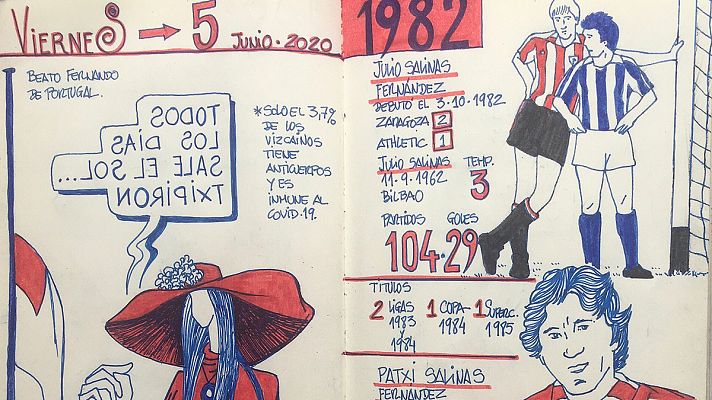 VIERNES → 5 JUNIO · 2020
BEATO FERNANDO
DE PORTUGAL.
TODOS
LOS DÍAS
SALE EL SOL...
TXIPIRON
*SOLO EL 3,7%
DE LOS
VIZCAINOS
TIENE
ANTICUERPOS
Y ES
INMUNE AL
COVID-19.
1982
JULIO SALINAS
FERNÁNDEZ
DEBUTÓ EL 3-10-1982
ZARAGOZA 2
ATHLETIC 1
JULIO SALINAS
11-9-1962
BILBAO
TEMP.
3
PARTIDOS GOLES
104·29
TÍTULOS
2 LIGAS
1983
Y
1984
1 COPA
1984
1 SUPERC.
1985
PATXI SALINAS
FERNÁNDEZ